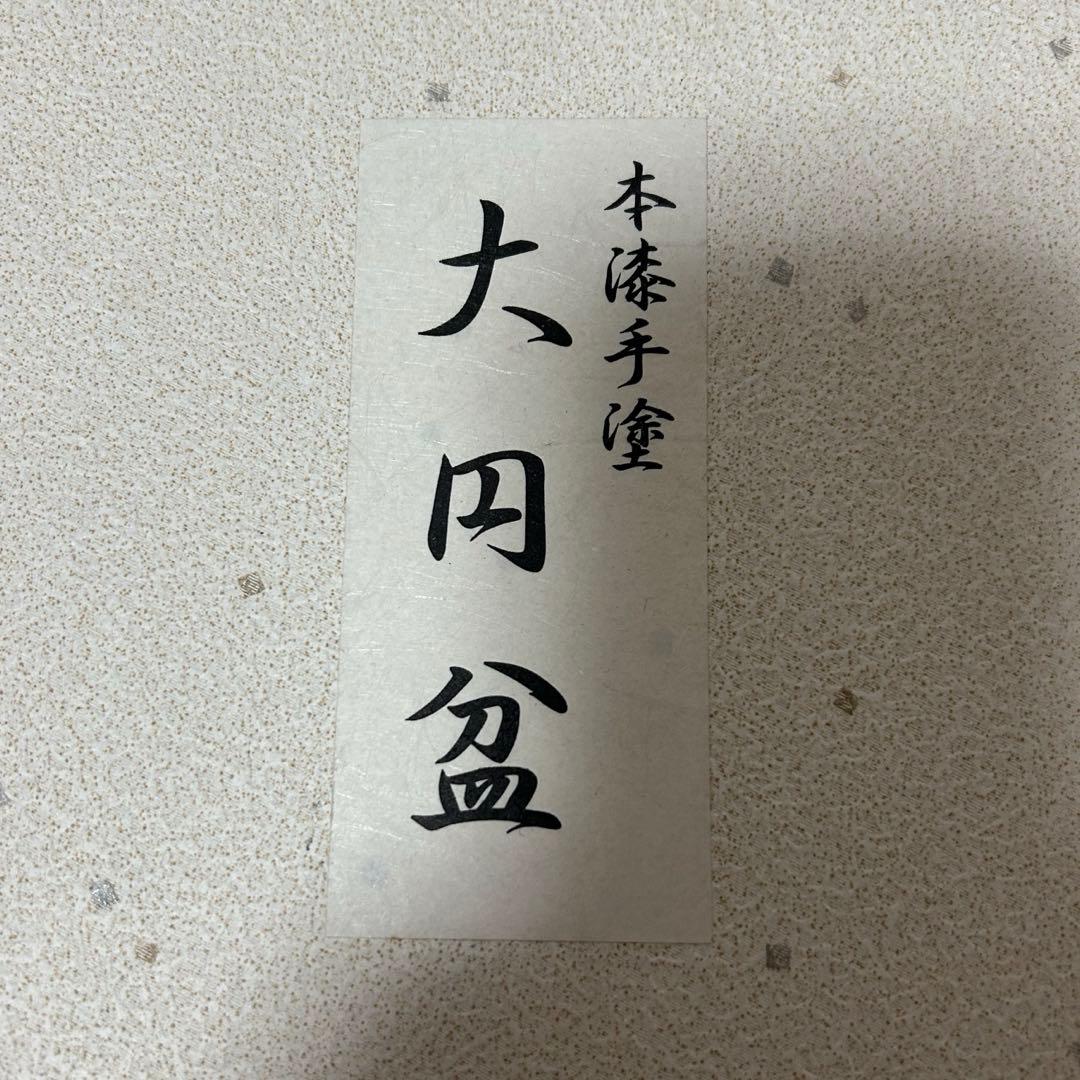 本漆手塗
大円盆